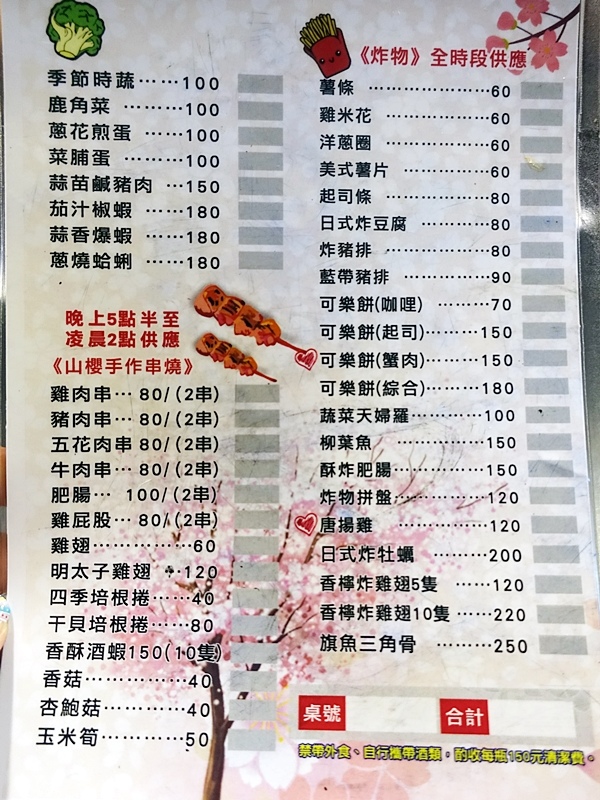 季節時蔬……100
鹿角菜………100
蔥花煎蛋……100
菜脯蛋………100
蒜苗鹹豬肉…150
茄汁椒蝦……180
蒜香爆蝦……180
蔥燒蛤蜊……180
晚上5點半至
凌晨2點供應
《山櫻手作串燒》
雞肉串… 80/(2串)
豬肉串… 80/(2串)
五花肉串 80/(2串)
牛肉串… 80/(2串)
肥腸… 100/(2串)
雞屁股… 80/(2串)
雞翅……………60
明太子雞翅 ♣·120
四季培根捲……40
干貝培根捲……80
香酥酒蝦150(10隻)
香菇……………40
杏鮑菇…………40
玉米筍…………50
《炸物》全時段供應
薯條 …………………60
雞米花 ………………60
洋蔥圈 ………………60
美式薯片 ……………60
起司條 ………………80
日式炸豆腐 …………80
炸豬排 ………………80
藍帶豬排 ……………90
可樂餅(咖哩) ………70
可樂餅(起司)………150
可樂餅(蟹肉)………150
可樂餅(綜合)………180
蔬菜天婦羅…………100
柳葉魚 ……………150
酥炸肥腸……………150
炸物拼盤……………120
唐揚雞 ……………120
日式炸牡蠣 ………200
香檸炸雞翅5隻 ……120
香檸炸雞翅10隻 ……220
旗魚三角骨 ………250
桌號 合計
禁帶外食、自行攜帶酒類，酌收每瓶150元清潔費。